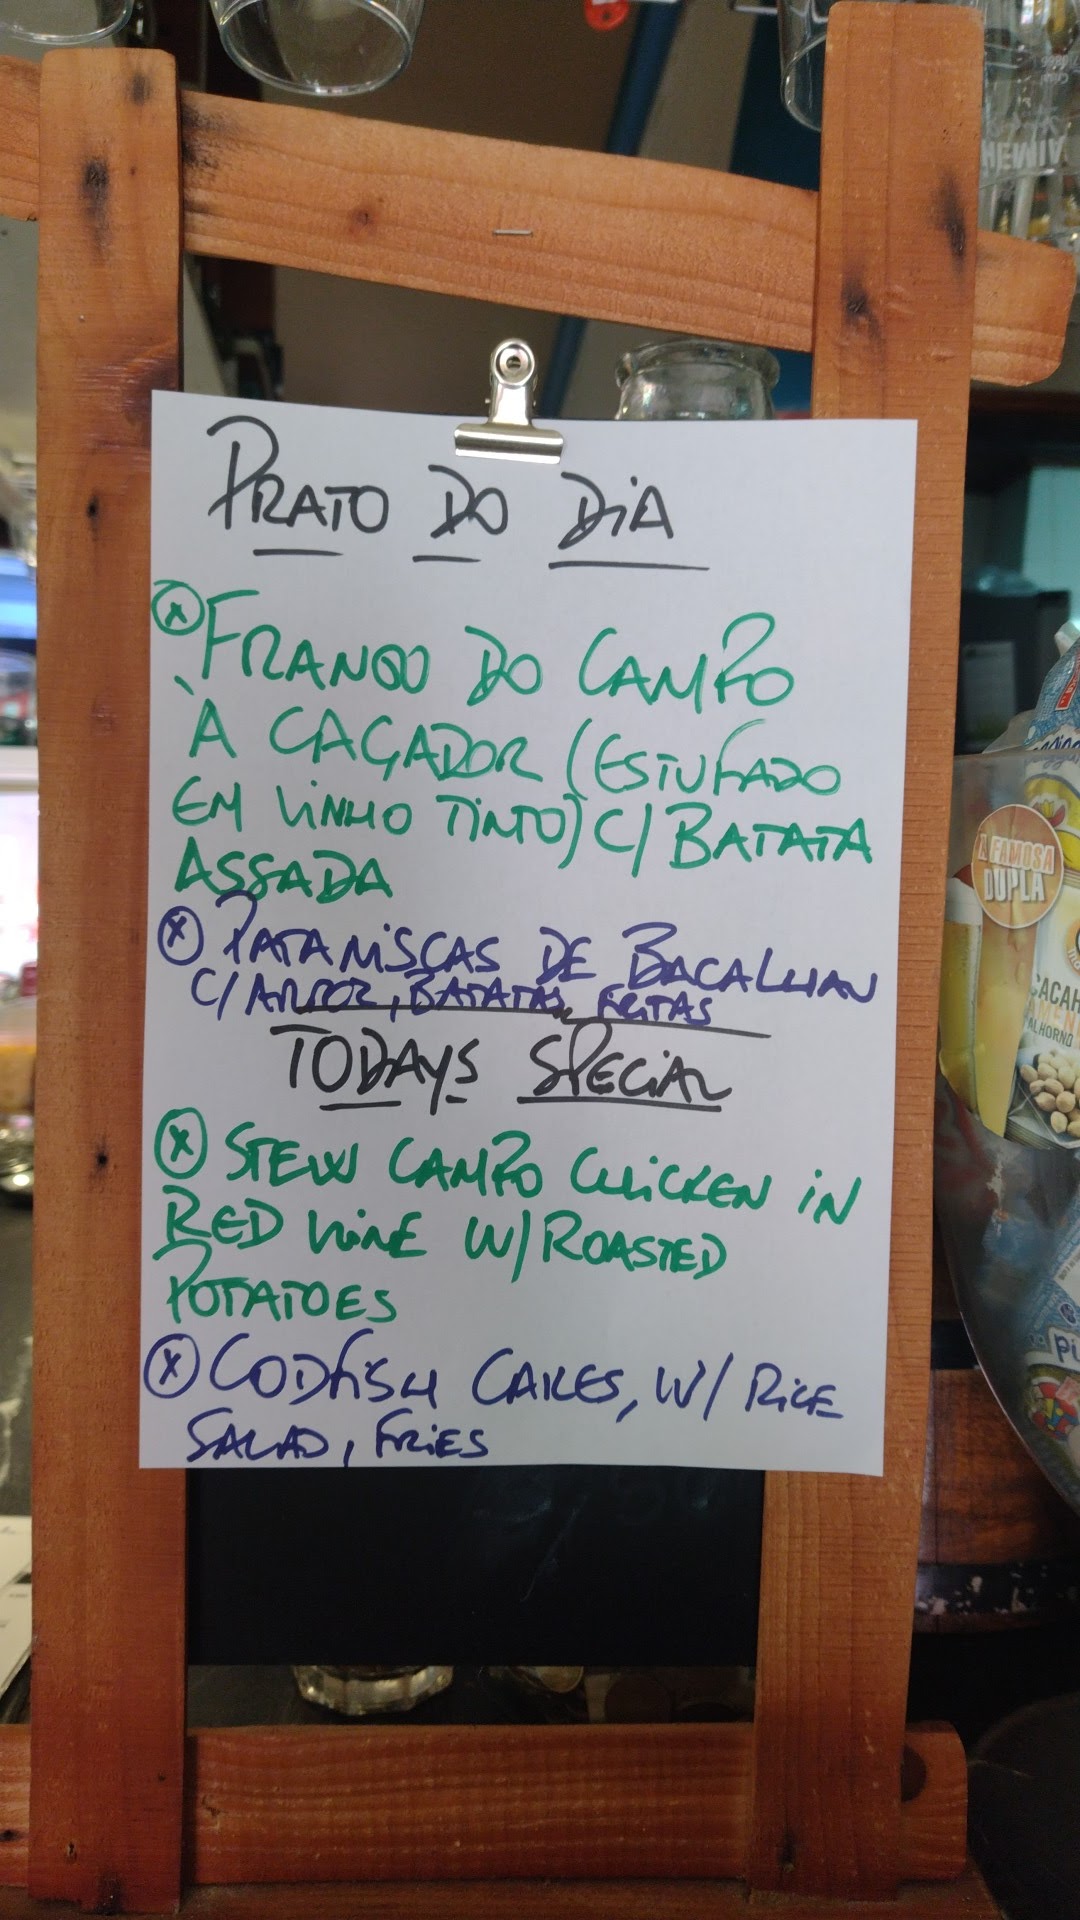 PRATO DO DiA
ⓧ FRANGO DO CAMPO
À CAÇADOR (ESTUFADO
EM VINHO TINTO) C/ BATATA
ASSADA
ⓧ PATANISCAS DE BACALHAU
C/ ARROZ, BATATAS FRITAS
TODAYS SPECIAL
ⓧ STEW CAMPO CHICKEN iN
RED WINE W/ ROASTED
POTATOES
ⓧ CODFISH CAKES, W/ RICE
SALAD, FRIES
A FAMOSA
DUPLA